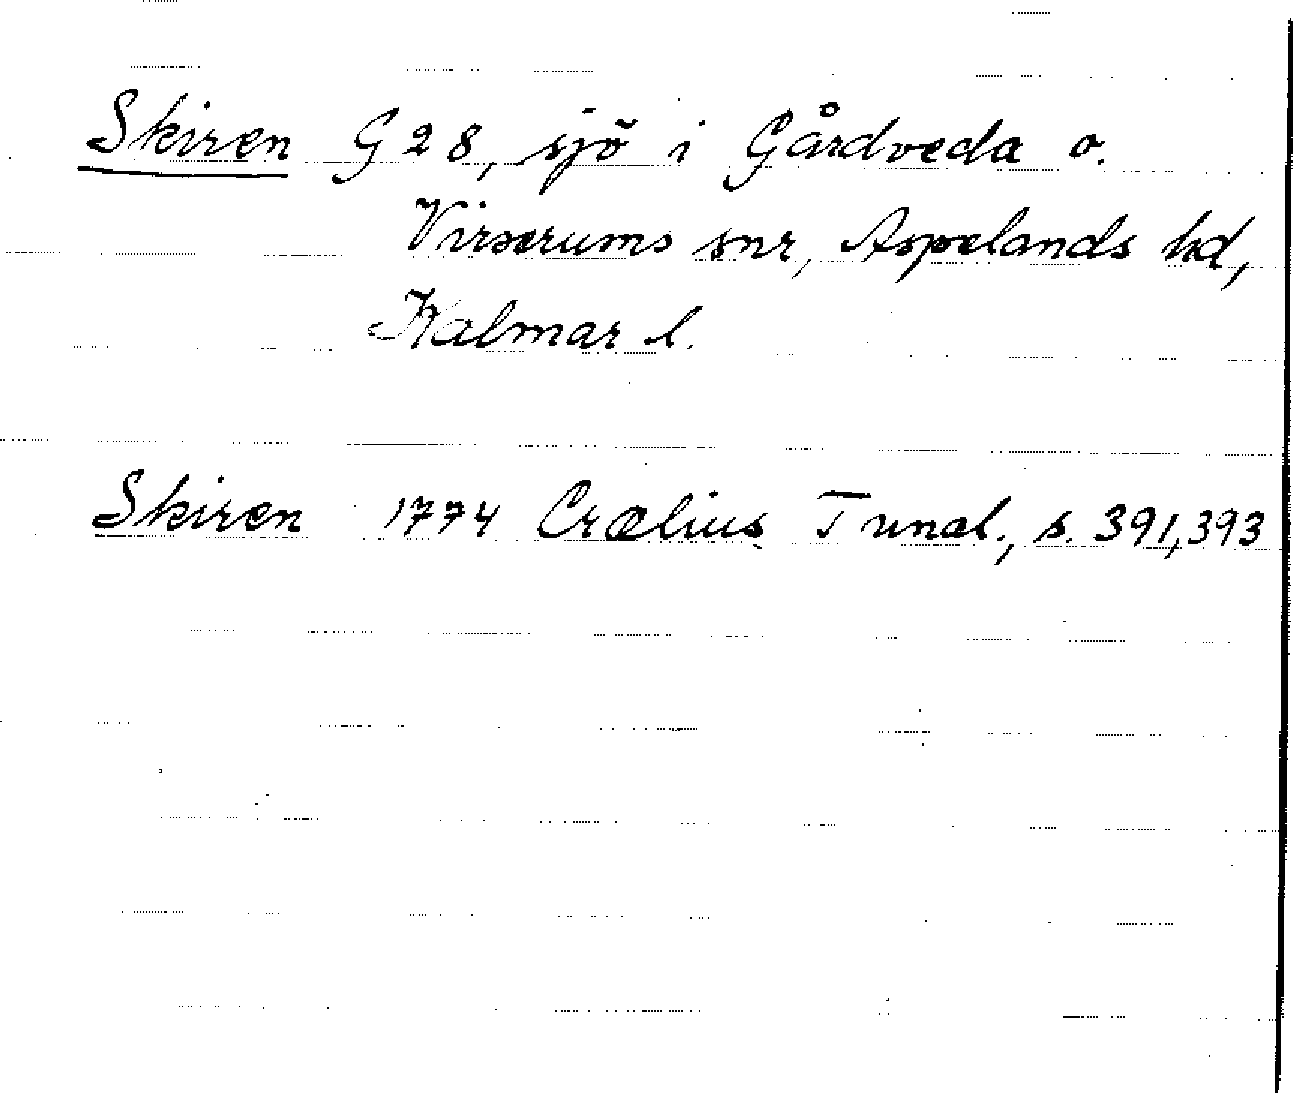 Skiren G 28, sjö i Gårdveda o.
Virserums snr, Aspelands hd,
Kalmar l.
Skiren 1774 Crælius Tunal., s. 391,393